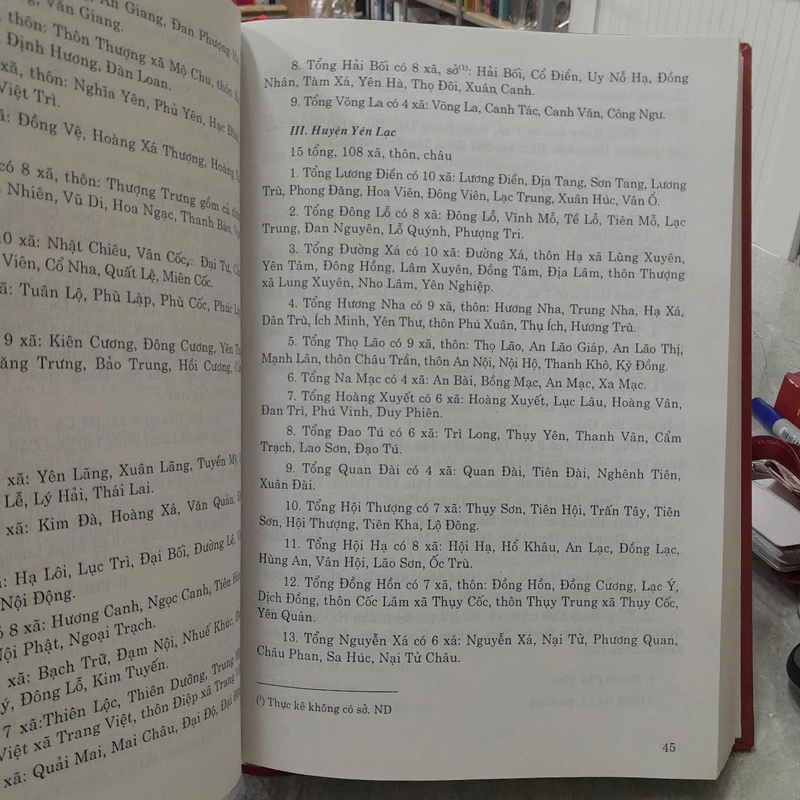 An Giang, Đan Phượng
g, Văn Giang.
, thôn: Thôn Thượng xã Mộ Chu, thôn
Định Hương, Đàn Loan.
xã, thôn: Nghĩa Yên, Phủ Yên, Hạc
Việt Trì.
ã: Đồng Vệ, Hoàng Xá Thượng, Hoàng
có 8 xã, thôn: Thượng Trưng gồm cả
Nhiên, Vũ Di, Hoa Ngạc, Thanh Bào,
10 xã: Nhật Chiêu, Vân Cốc, Đại Tự,
Viên, Cổ Nha, Quất Lệ, Miên Cốc.
ã: Tuân Lộ, Phù Lập, Phù Cốc, Phúc
9 xã: Kiên Cương, Đông Cương, Yên
ăng Trưng, Bảo Trung, Hồi Cương,
xã: Yên Lãng, Xuân Lãng, Tuyển Mỹ,
Lễ, Lý Hải, Thái Lai.
xã: Kim Đà, Hoàng Xá, Văn Quán,
ã: Hạ Lôi, Lục Trì, Đại Bối, Đường Lệ,
Nội Động.
ó 8 xã: Hương Canh, Ngọc Canh, Tiên
Nội Phật, Ngoại Trạch.
xã: Bạch Trữ, Đạm Nội, Nhuế Khúc,
ý, Đông Lỗ, Kim Tuyến.
7 xã:Thiên Lộc, Thiên Dưỡng, Trung
Việt xã Trang Việt, thôn Điệp xã Trang
xã: Quải Mai, Mai Châu, Đại Độ, Đại
8. Tổng Hải Bối có 8 xã, sở(¹): Hải Bối, Cổ Điển, Uy Nỗ Hạ, Đồng
Nhân, Tàm Xá, Yên Hà, Thọ Đôi, Xuân Canh.
9. Tổng Võng La có 4 xã: Võng La, Canh Tác, Canh Vân, Công Ngư.
III. Huyện Yên Lạc
15 tổng, 108 xã, thôn, châu
1. Tổng Lương Điền có 10 xã: Lương Điền, Địa Tang, Sơn Tang, Lương
Trù, Phong Đăng, Hoa Viên, Đông Viên, Lạc Trung, Xuân Húc, Vân Ổ.
2. Tổng Đông Lỗ có 8 xã: Đông Lỗ, Vĩnh Mỗ, Tề Lỗ, Tiên Mỗ, Lạc
Trung, Đan Nguyên, Lỗ Quỳnh, Phượng Tri.
3. Tổng Đường Xá có 10 xã: Đường Xá, thôn Hạ xã Lũng Xuyên,
Yên Tâm, Đông Hồng, Lâm Xuyên, Đồng Tâm, Địa Lâm, thôn Thượng
xã Lung Xuyên, Nho Lâm, Yên Nghiệp.
4. Tổng Hương Nha có 9 xã, thôn: Hương Nha, Trung Nha, Hạ Xá,
Dân Trù, Ích Minh, Yên Thư, thôn Phú Xuân, Thụ Ích, Hương Trù.
5. Tổng Thọ Lão có 9 xã, thôn: Thọ Lão, An Lão Giáp, An Lão Thị,
Mạnh Lân, thôn Châu Trần, thôn An Nội, Nội Hộ, Thanh Khô, Kỳ Đồng.
6. Tổng Na Mạc có 4 xã: An Bài, Bồng Mạc, An Mạc, Xa Mạc.
7. Tổng Hoàng Xuyết có 6 xã: Hoàng Xuyết, Lục Lâu, Hoàng Vân,
Đan Trì, Phú Vinh, Duy Phiên.
8. Tổng Đao Tú có 6 xã: Trì Long, Thụy Yên, Thanh Vân, Cẩm
Trạch, Lao Sơn, Đạo Tú.
9. Tổng Quan Đài có 4 xã: Quan Đài, Tiên Đài, Nghênh Tiên,
Xuân Đài.
10. Tổng Hội Thượng có 7 xã: Thụy Sơn, Tiên Hội, Trấn Tây, Tiên
Sơn, Hội Thượng, Tiên Kha, Lộ Đông.
11. Tổng Hội Hạ có 8 xã: Hội Hạ, Hổ Khâu, An Lạc, Đồng Lạc,
Hùng An, Vân Hội, Lão Sơn, Ốc Trù.
12. Tổng Đồng Hồn có 7 xã, thôn: Đồng Hồn, Đồng Cương, Lạc Ý,
Dịch Đồng, thôn Cốc Lâm xã Thụy Cốc, thôn Thụy Trung xã Thụy Cốc,
Yên Quán.
13. Tổng Nguyễn Xá có 6 xá: Nguyễn Xá, Nại Tử, Phương Quan,
Châu Phan, Sa Húc, Nại Tử Châu.
(¹) Thực kê không có sở. ND
45